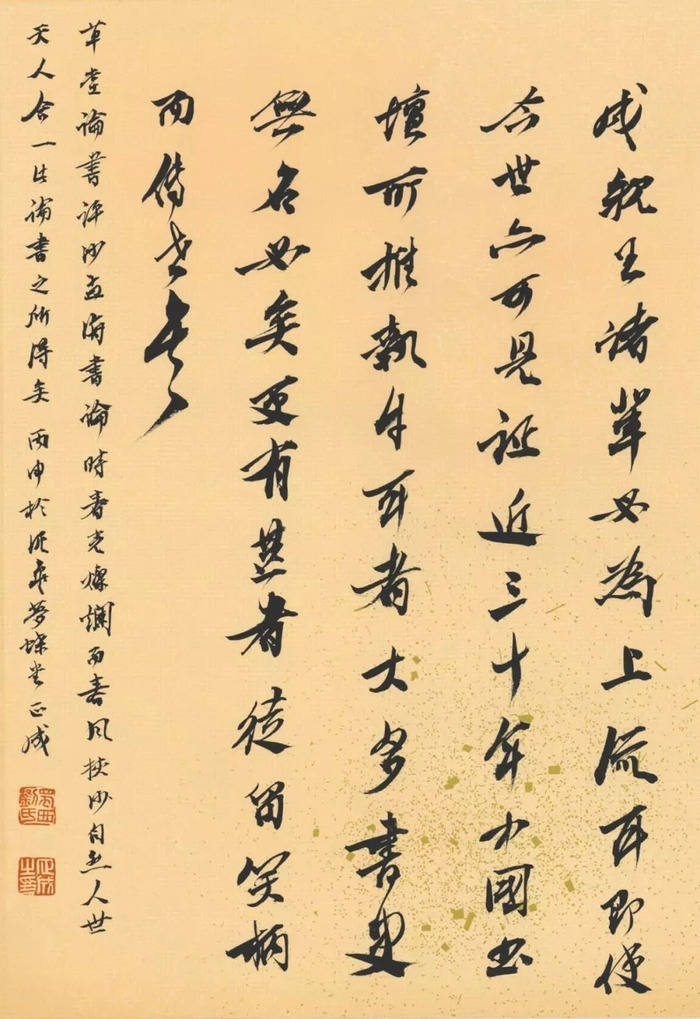 成親王諸輩必為上流耳即使
今世亦可見証近三十年中國书
壇所推執牛耳者大多書史
無名必矣更有甚者徒留笑柄
而傳世矣
草堂論書評沙孟海書論時春光燦爛而春風挾沙自然人世
天人合一此論書之所得矣 丙申於 夢蝶堂 正成